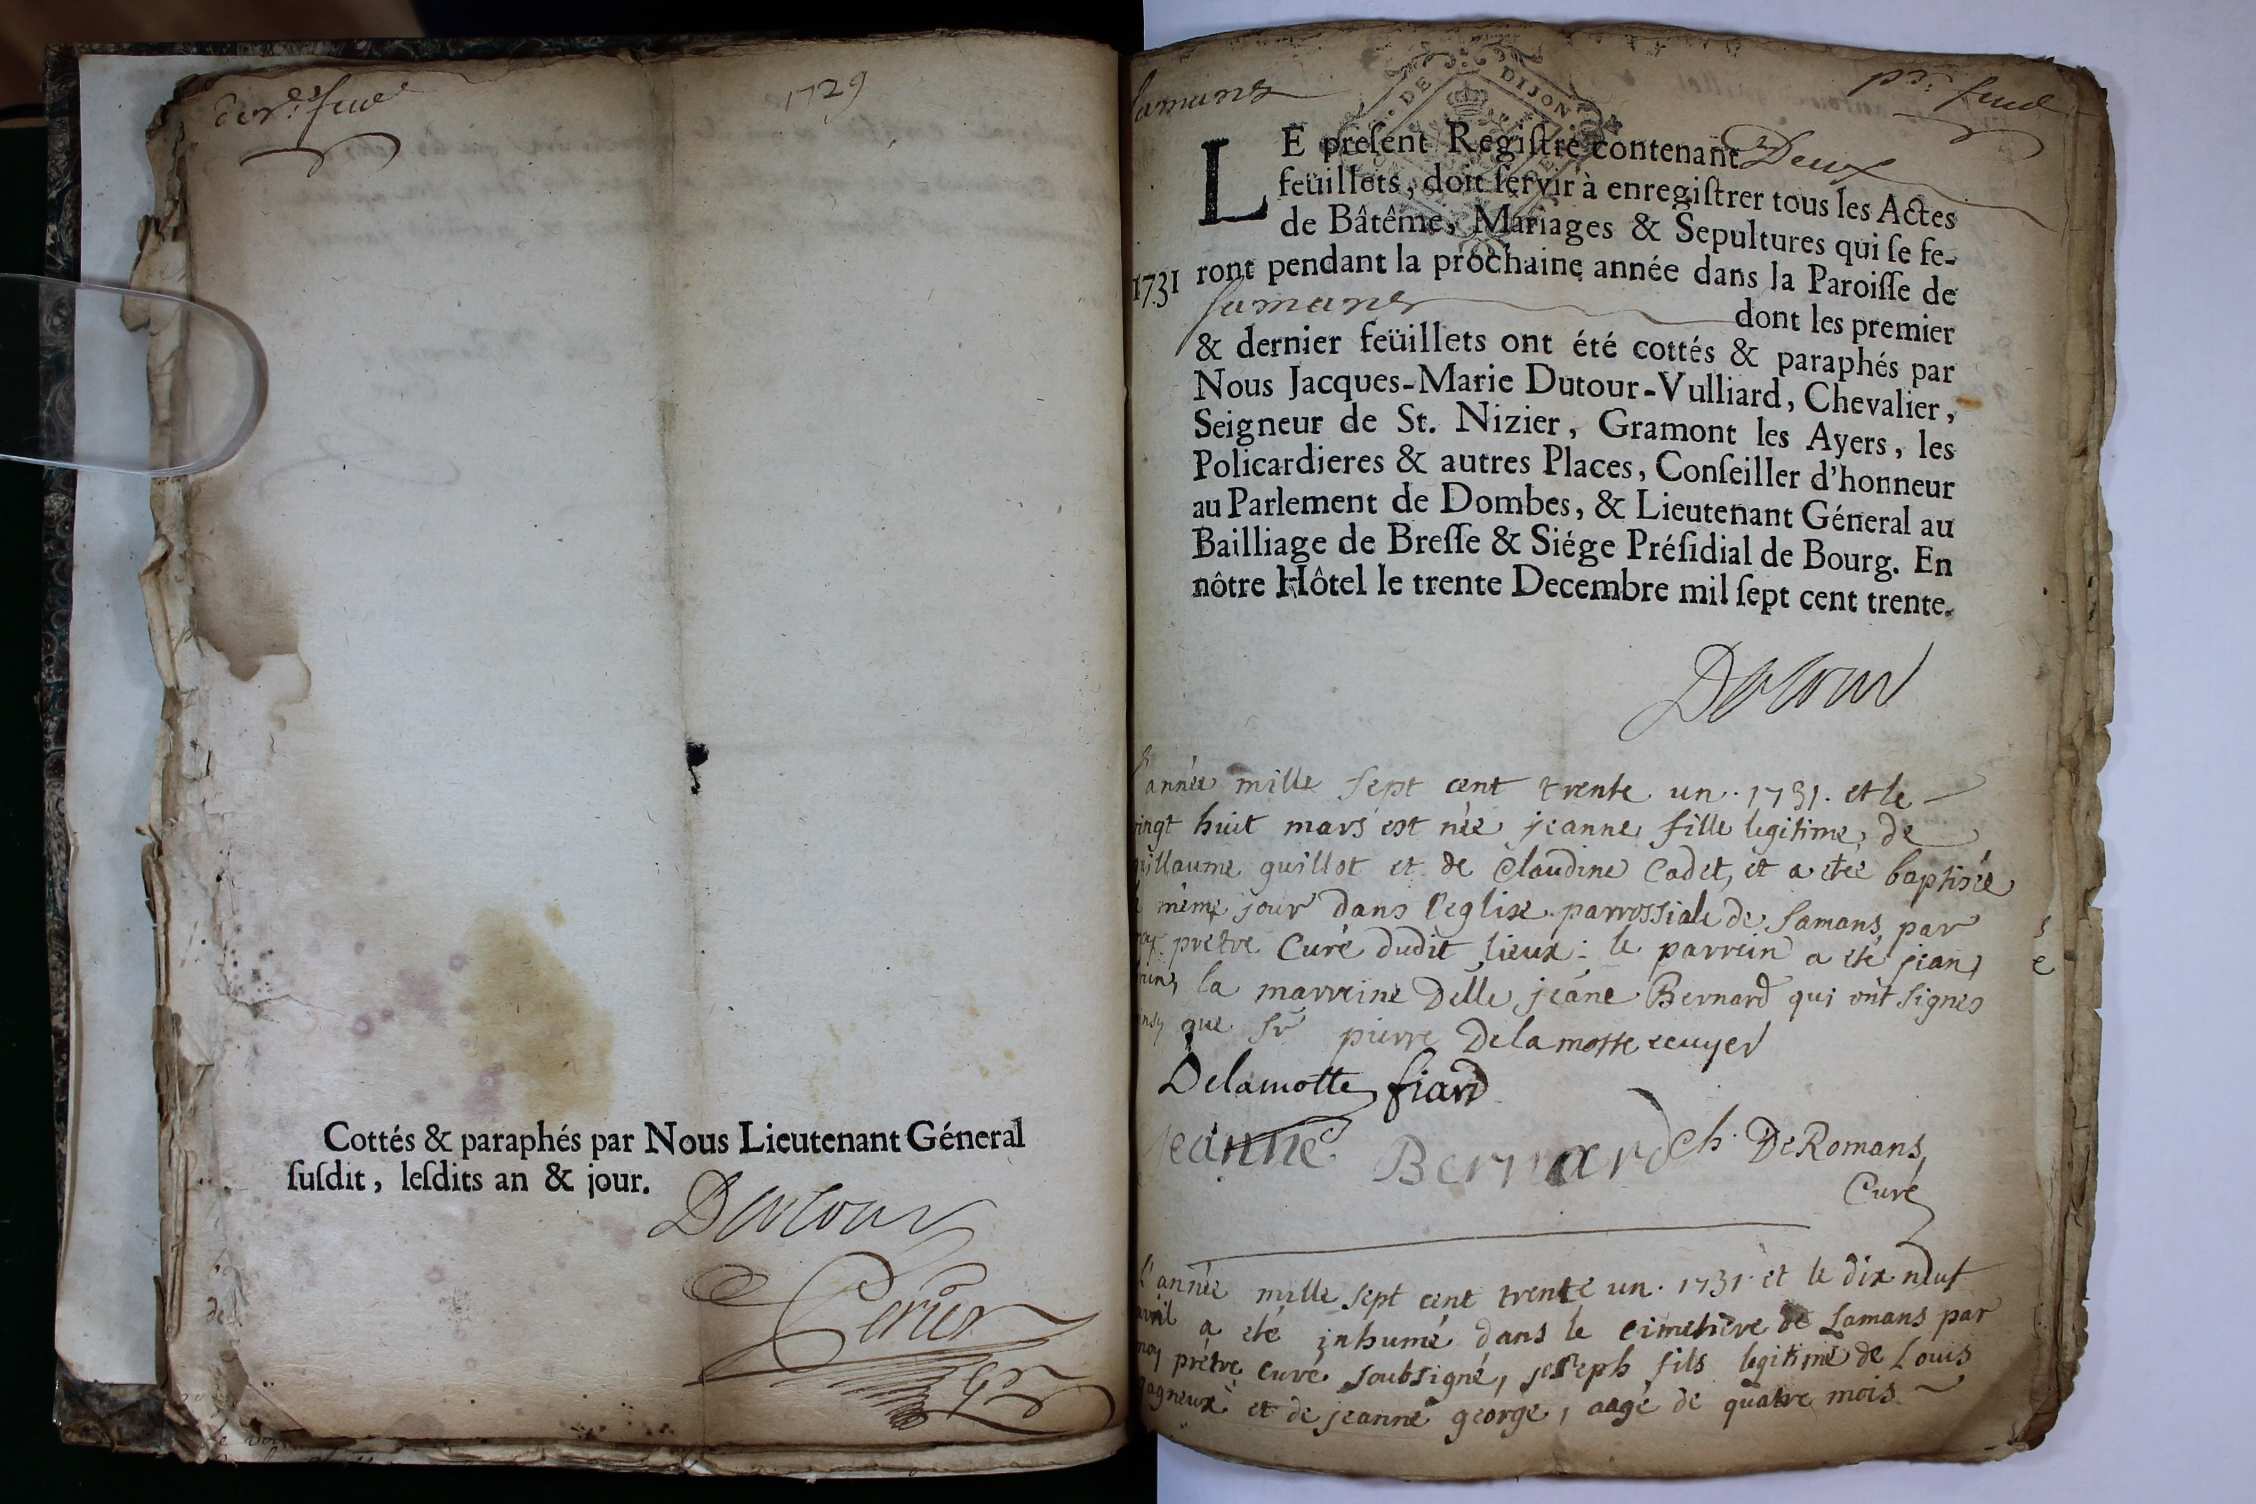 1729
Cottés & paraphés par Nous Lieutenant Géneral
suſdit, leſdits an & jour.
Dutour
Perier
de
DE DIJON
Samans
pr. feuil
LE preſent Regiſtre contenant Deux
feüillets, doit ſervir à enregiſtrer tous les Actes
de Bâtême, Mariages & Sepultures qui ſe fe-
1731 ront pendant la prochaine année dans la Paroiſſe de
Samans dont les premier
& dernier feüillets ont été cottés & paraphés par
Nous Jacques-Marie Dutour-Vulliard, Chevalier,
Seigneur de St. Nizier, Gramont les Ayers, les
Policardieres & autres Places, Conſeiller d'honneur
au Parlement de Dombes, & Lieutenant Géneral au
Bailliage de Breſſe & Siége Préſidial de Bourg. En
nôtre Hôtel le trente Decembre mil ſept cent trente.
Dutour
l'année mille sept cent trente un. 1731. et le
vingt huit mars est née jeanne fille legitime de
guillaume guillot et de Claudine Cadet, et a etée baptisée
le même jour dans l'eglise parrossiale de Samans par
moy prêtre Curé dudit lieux: le parrein a eté jean
la marreine Delle jeane Bernard qui ont signés
ansy que Sr pierre Delamotte ecuyer
Delamotte fiard
jeanne Bernard ch. De Romans,
Curé
l'année mille sept cent trente un. 1731. et le dix neuf
avril a eté inhumé dans le cimetière de Samans par
moy prêtre curé soubsigné, joseph fils legitime de Louis
gagneux et de jeanne george, aagé de quatre mois